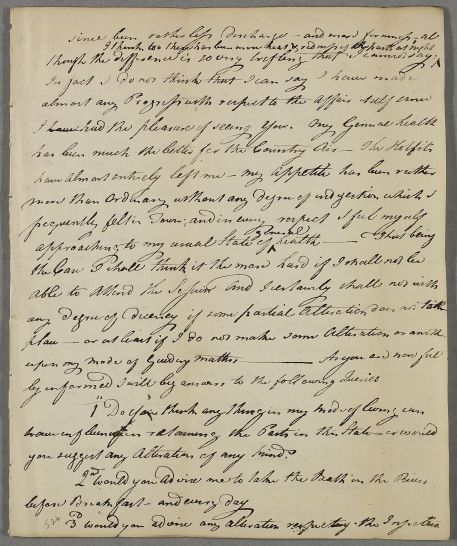 since been rather less discharge - and more firmness - al
I think, too there has been more heat & redness of the parts at night
though the difference is so very trifling that I cannot say.
In fact I do not think that I can say I have made
almost any Progress with respect to the Affair itself since
I have had the pleasure of seeing You. My General health
has been much the better for the Country Air - The
have almost entirely left me - my appetite has been rather
more than Ordinary without any degree of indigestion which I
frequently felt in Town, and in every respect I feel myself
general
approaching to my usual State of health - that being
the Case I shall think it the more hard if I shall not be
able to Attend the Session and I certainly shall not with
any degree of decency if some partial Alteration does not take
place - or at least if I do not make some Alteration
upon my mode of Guiding matters As you are now ful
ly informed I will beg answers to the following Queries
1st Do You think any thing in my mode of living can
have influence in retaining the Parts in this State - or would
you suggest any Alteration of any kind?
2nd would you advise me to take the Bath in the River
before Breakfast - and every day
3d would you advise any alteration respecting the Injection